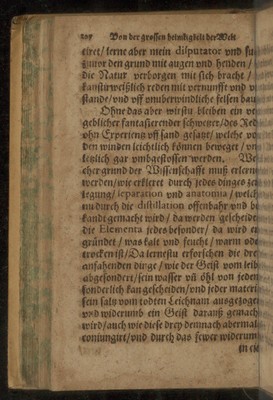 Von der grossen heimligkeit der Welt
tiret / lerne aber mein disputator vnd su
zuuor den grund mit augen vnd henden /
die Natur verborgen mit sich bracht /
kanstu weißlich reden mit vernunfft vnd v
stande / vnd vff vnuberwindliche felsen bau
Ohne das aber wirstu bleiben ein ve
geblicher fantasierender schweiner / des Red
ohn Experientz vff sand gesatzt / welche vo
den winden leichtlich können beweget / vn
leglich gar vmbgestossen werden. We
cher grund der Wissenschafft muß erlern
werden / wie erkleret durch jedes dinges zer
legung / separation vnd anatomia / welch
nu durch die distillation offenbahr vnd be
kandt gemacht wird / da werden gescheide
die Elementa jedes besonder / da wird er
gründet / was kalt vnd feucht / warm ode
trocken ist / Da lernestu erforschen die dre
anfahenden dinge / wie der Geist vom leib
abgesondert / sein wasser vñ öhl von jeden
sonderlich kan gescheiden / vnd jeder materi
sein sals vom todten Leichnam ausgezoge
vnd widerumb ein Geist daraus gemach
wird / auch wie diese drey demnach abermals
coniungirt / vnd durch das fewer widerum
in ein